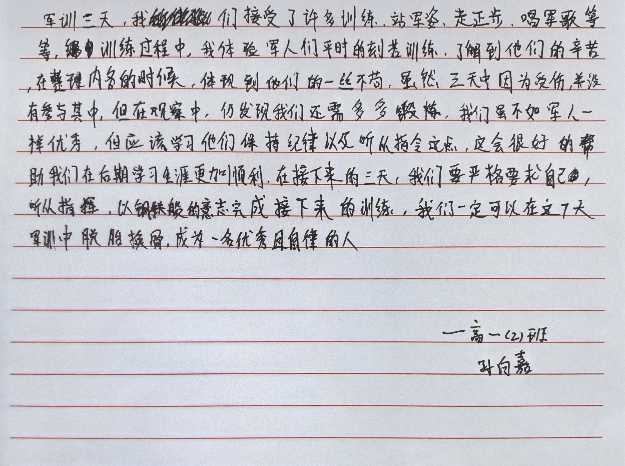 军训三天,我们接受了许多训练,站军姿,走正步,唱军歌等
等,训练过程中,我体验军人们平时的刻苦训练,了解到他们的辛苦
,在整理内务的时候,体现到他们的一丝不苟,虽然三天中因为受伤,并没
有参与其中,但在观察中,仍发现我们还需多多锻炼,我们虽不如军人一
样优秀,但应该学习他们保持纪律以及听从指令这点,定会很好的帮
助我们在后期学习生涯更加顺利,在接下来的三天,我们要严格要求自己,
听从指挥,以钢铁般的意志完成接下来的训练,我们一定可以在这7天
军训中脱胎换骨,成为一名优秀且自律的人
一高一(2)班
孙白嘉